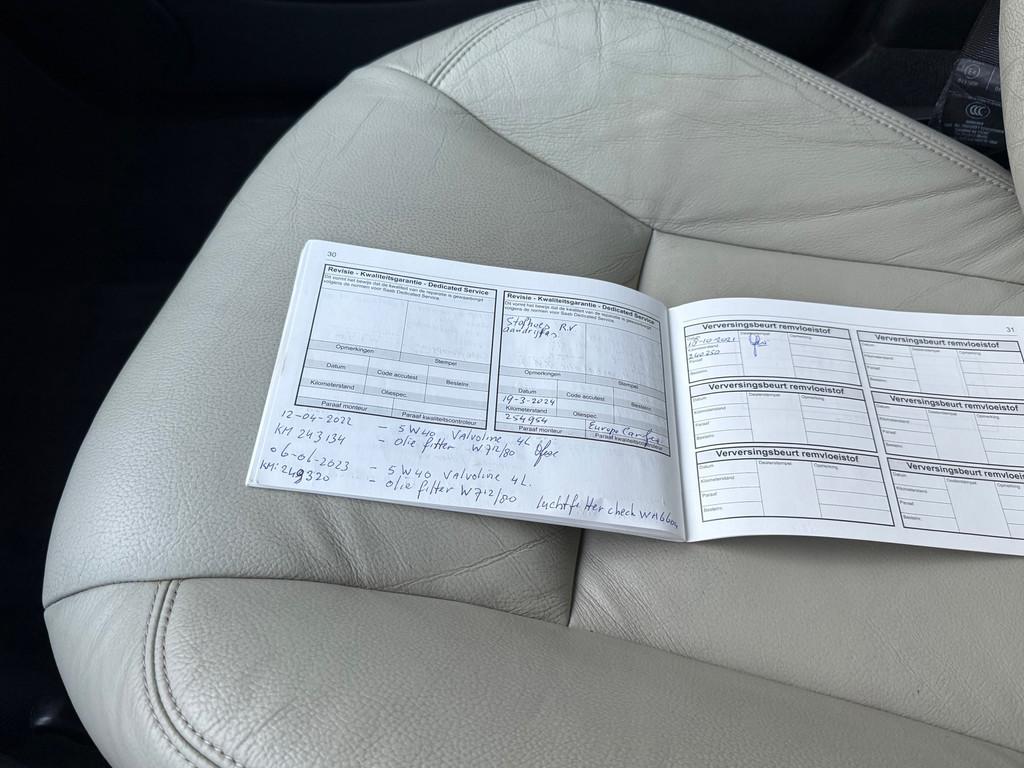 30
Revisie - Kwaliteitsgarantie - Dedicated Service
Dit vormt het bewijs dat de kwaliteit van de reparatie is gewaarborgd
volgens de normen voor Saab Dedicated Service.
Opmerkingen
Stempel
Datum
Code accutest
Bestelnr.
Kilometerstand
Oliespec.
Paraaf monteur
Paraaf kwaliteitscontroleur
Revisie - Kwaliteitsgarantie - Dedicated Service
Dit vormt het bewijs dat de kwaliteit van de reparatie is gewaarborgd
volgens de normen voor Saab Dedicated Service.
Stofhoes R.V
aandrijfas.
Opmerkingen
Stempel
Datum
Code accutest
Bestelnr.
19-3-2024
Kilometerstand
Oliespec.
254954
Paraaf monteur
Paraaf kwaliteitscontroleur
12-04-2022 - 5W40 Valvoline 4L
KM 243134 - olie filter W712/80
06-06-2023 - 5W40 Valvoline 4L.
KM: 249320 - olie filter W712/80 luchtfilter check
31
Verversingsbeurt remvloeistof
Datum
Dealerstempel
Opmerking
18-10-2021
Kilometerstand
240250
Paraaf
Bestelnr.
Verversingsbeurt remvloeistof
Datum
Dealerstempel
Opmerking
Kilometerstand
Paraaf
Bestelnr.
Verversingsbeurt remvloeistof
Datum
Dealerstempel
Opmerking
Kilometerstand
Paraaf
Bestelnr.
Verversingsbeurt remvloeistof
Datum
Dealerstempel
Opmerking
Kilometerstand
Paraaf
Bestelnr.
Verversingsbeurt remvloeistof
Datum
Dealerstempel
Opmerking
Kilometerstand
Paraaf
Bestelnr.
Verversingsbeurt remvloeistof
Datum
Dealerstempel
Opmerking
Kilometerstand
Paraaf
Bestelnr.